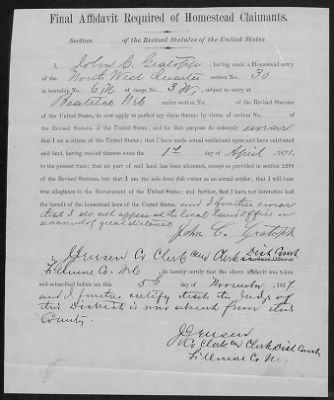 Final Affidavit Required of Homestead Claimants.
Section of the Revised Statutes of the United States.
I, John C. , having made a Homestead entry
of the North West Quarter section No. 30
in township No. 6 N of range No. 3 W, subject to entry at
Beatrice Neb under section No. of the Revised Statutes
of the United States, do now apply to perfect my claim thereto by virtue of section No.
of the Revised Statutes of the United States; and for that purpose do solemnly swear
that I am a citizen of the United States; that I have made actual settlement upon and have cultivated
said land, having resided thereon since the 1st day of April, 1871,
to the present time; that no part of said land has been alienated, except as provided in section 2288
of the Revised Statutes, but that I am the sole bona fide owner as an actual settler; that I will bear
true allegiance to the Government of the United States; and further, that I have not heretofore had
the benefit of the homestead laws of the United States, and I further swear
that I do not appear at the local Land office on
account of great distance
John C.
I, J Jensen Co Clerk and Clerk Dist Court
Fillmore Co. Neb do hereby certify that the above affidavit was taken
and subscribed before me this day of November, 187
and I further certify that the Judge of
this District is now absent from this
County.
J Jensen
Co Clerk and Clerk Dist Court
Fillmore Co Ne